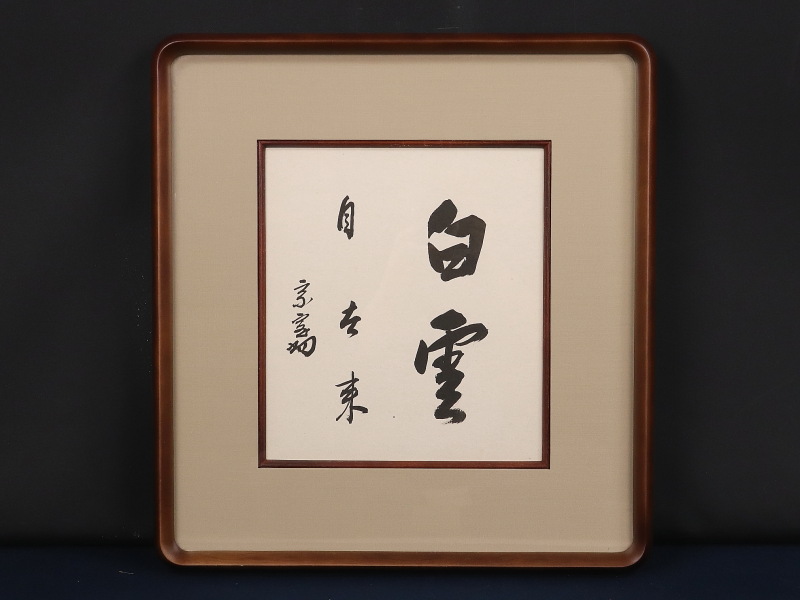 白雲
自去来